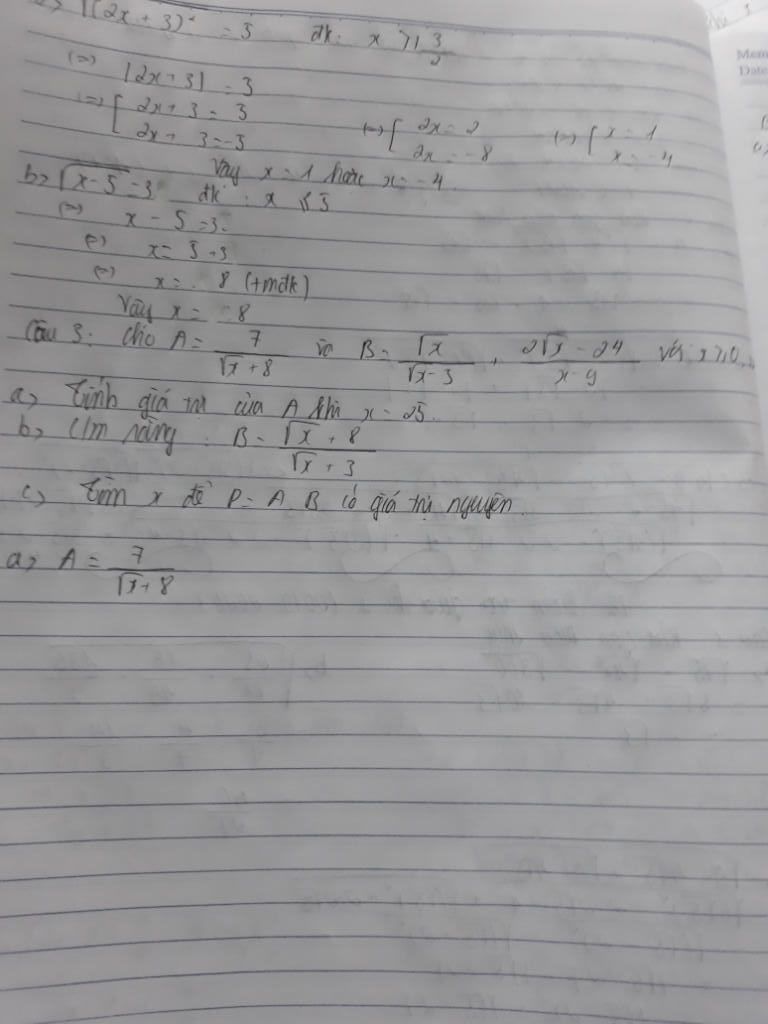 a> √(2x + 3)² = 5 đk: x ⩾ 3/2
(=) |2x+3| = 3
(=) [ 2x+3 = 3 (=) [ 2x = 2 (=) [ x = 1
2x + 3 = -3 2x = -8 x = -4
Vậy x = 1 hoặc x = -4
b> √x-5 = 3 đk : x ⩽ 5
(=) x - 5 = 3
(=) x = 5 + 3
(=) x = 8 (+mđk)
Vậy x = 8
Câu 3: Cho A = 7/(√x + 8) và B = √x/(√x - 3) + (2√x - 24)/(x - 9) với x ⩾ 0
a> Tính giá trị của A khi x = 25.
b> C/m rằng : B = (√x + 8)/(√x + 3)
c> Tìm x để P = A.B có giá trị nguyên.
a> A = 7/(√x + 8)